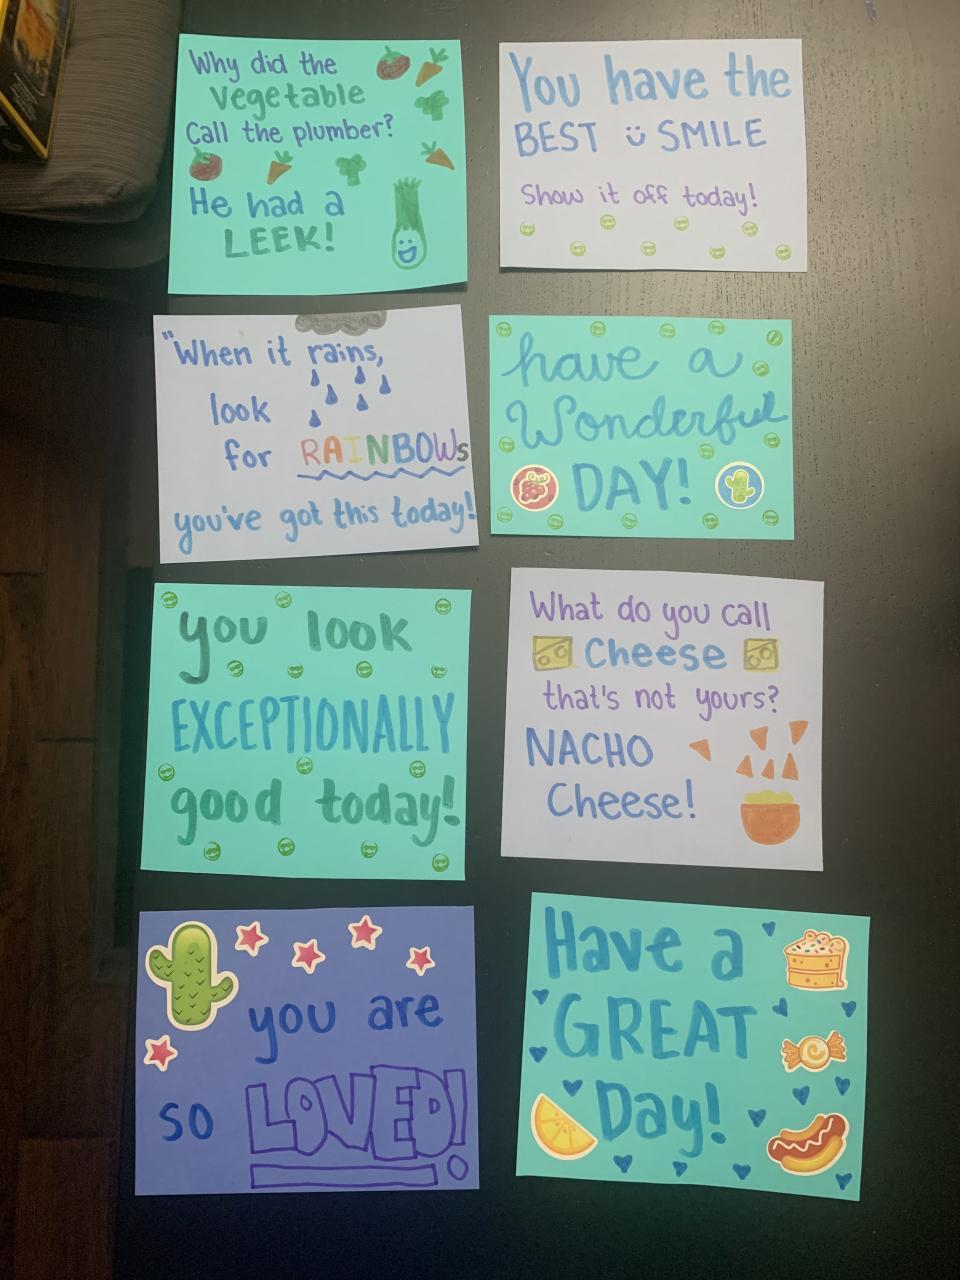 Why did the
Vegetable
Call the plumber?
He had a
LEEK!
You have the
BEST SMILE
Show it off today!
"When it rains,
look
for RAINBOWs
you've got this today!
have a
Wonderful
DAY!
you look
EXCEPTIONALLY
good today!
What do you call
Cheese
that's not yours?
NACHO
Cheese!
you are
so LOVED!
Have a
GREAT
Day!